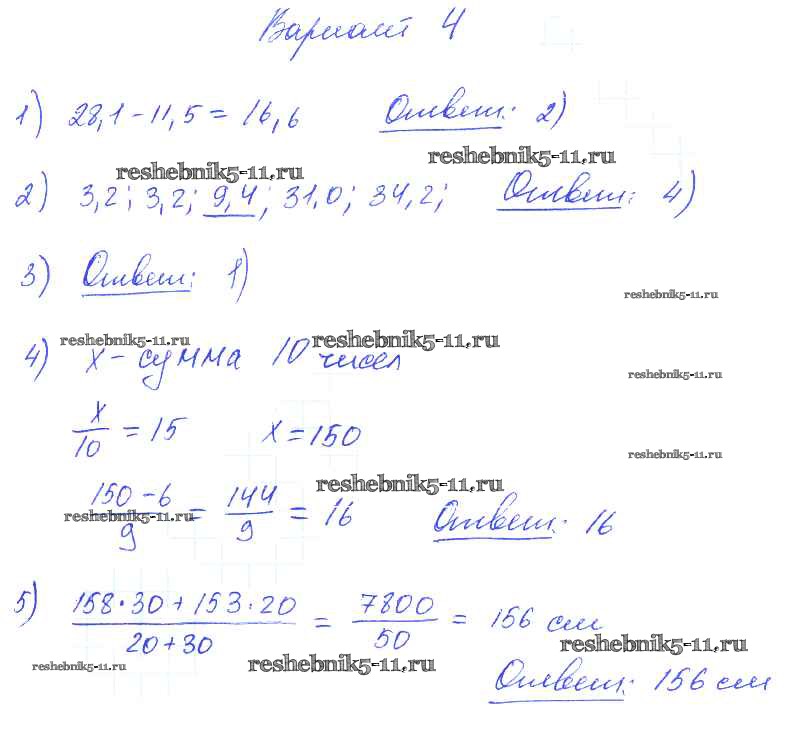 Вариант 4
1) 28,1-11,5 = 16,6 Ответ: 2)
reshebnik5-11.ru reshebnik5-11.ru
2) 3,2; 3,2; 9,4; 31,0; 34,2; Ответ: 4)
3) Ответ: 1)
reshebnik5-11.ru
reshebnik5-11.ru reshebnik5-11.ru
4) x - сумма 10 чисел
reshebnik5-11.ru
x/10 = 15 x = 150
reshebnik5-11.ru
reshebnik5-11.ru
150-6/9 = 144/9 = 16 Ответ: 16
reshebnik5-11.ru
5) 158·30+153·20/20+30 = 7800/50 = 156 см
reshebnik5-11.ru
reshebnik5-11.ru reshebnik5-11.ru
Ответ: 156 см